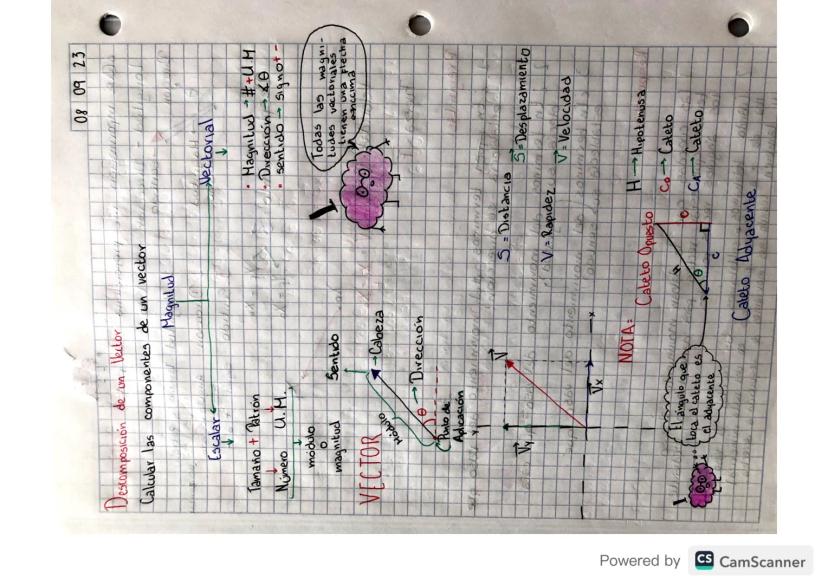 08 09 23
Descomposición de un Vector
Calcular las componentes de un vector
Magnitud
Escalar
Vectorial
Tamaño + Patrón
Número U.M.
módulo
o
magnitud
• Magnitud → # + U.M
• Dirección → ∡θ
• sentido → signo + -
Todas las magni-
tudes vectoriales
tienen una flecha
VECTOR
Sentido
Cabeza
Módulo
Dirección
θ
Punto de
Aplicación
S = Distancia
S⃗ = Desplazamiento
V = Rapidez
V⃗ = Velocidad
y
V⃗
V⃗y
V⃗x
x
NOTA:
Cateto Opuesto
H → Hipotenusa
Co → Cateto
CA → Cateto
H
θ
C
Cateto Adyacente
El ángulo que
toca el cateto es
el adyacente
Powered by CS CamScanner